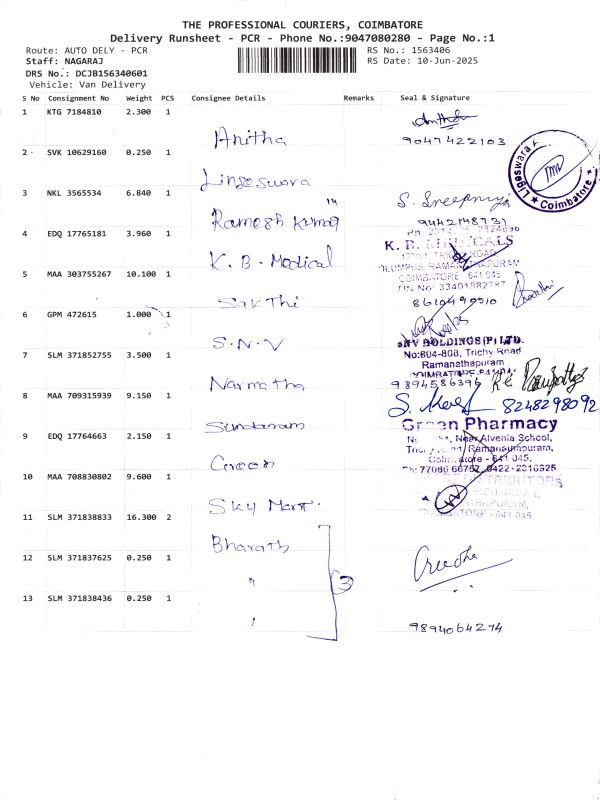 THE PROFESSIONAL COURIERS, COIMBATORE
Delivery Runsheet - PCR - Phone No.:9047080280 - Page No.:1
Route: AUTO DELY - PCR
RS No.: 1563406
Staff: NAGARAJ
RS Date: 10-Jun-2025
DRS No.: DCJB156340601
Vehicle: Van Delivery
S No Consignment No Weight PCS Consignee Details Remarks Seal & Signature
1 KTG 7184810 2.300 1
Anitha 9047422103
2 SVK 10629160 0.250 1
Lingeswara
Coimbatore
3 NKL 3565534 6.840 1
Ramesh Kumar
9442148731
4 EDQ 17765181 3.960 1
K. B. Medical
COIMBATORE 641 045
5 MAA 303755267 10.100 1
Sakthi 8610490510
6 GPM 472615 1.000 1
S.N.V
SNV HOLDINGS (P) LTD.
No:604-608, Trichy Road
Ramanathapuram
7 SLM 371852755 3.500 1
Narmatha 9894586396
8 MAA 709315939 9.150 1
8248298092
Sundaram
Green Pharmacy
Near Alvenia School,
Ramanathapuram,
9 EDQ 17764663 2.150 1
Green
10 MAA 708830802 9.600 1
Sky Mart.
11 SLM 371838833 16.300 2
Bharath
12 SLM 371837625 0.250 1
" 3
13 SLM 371838436 0.250 1
9894064274